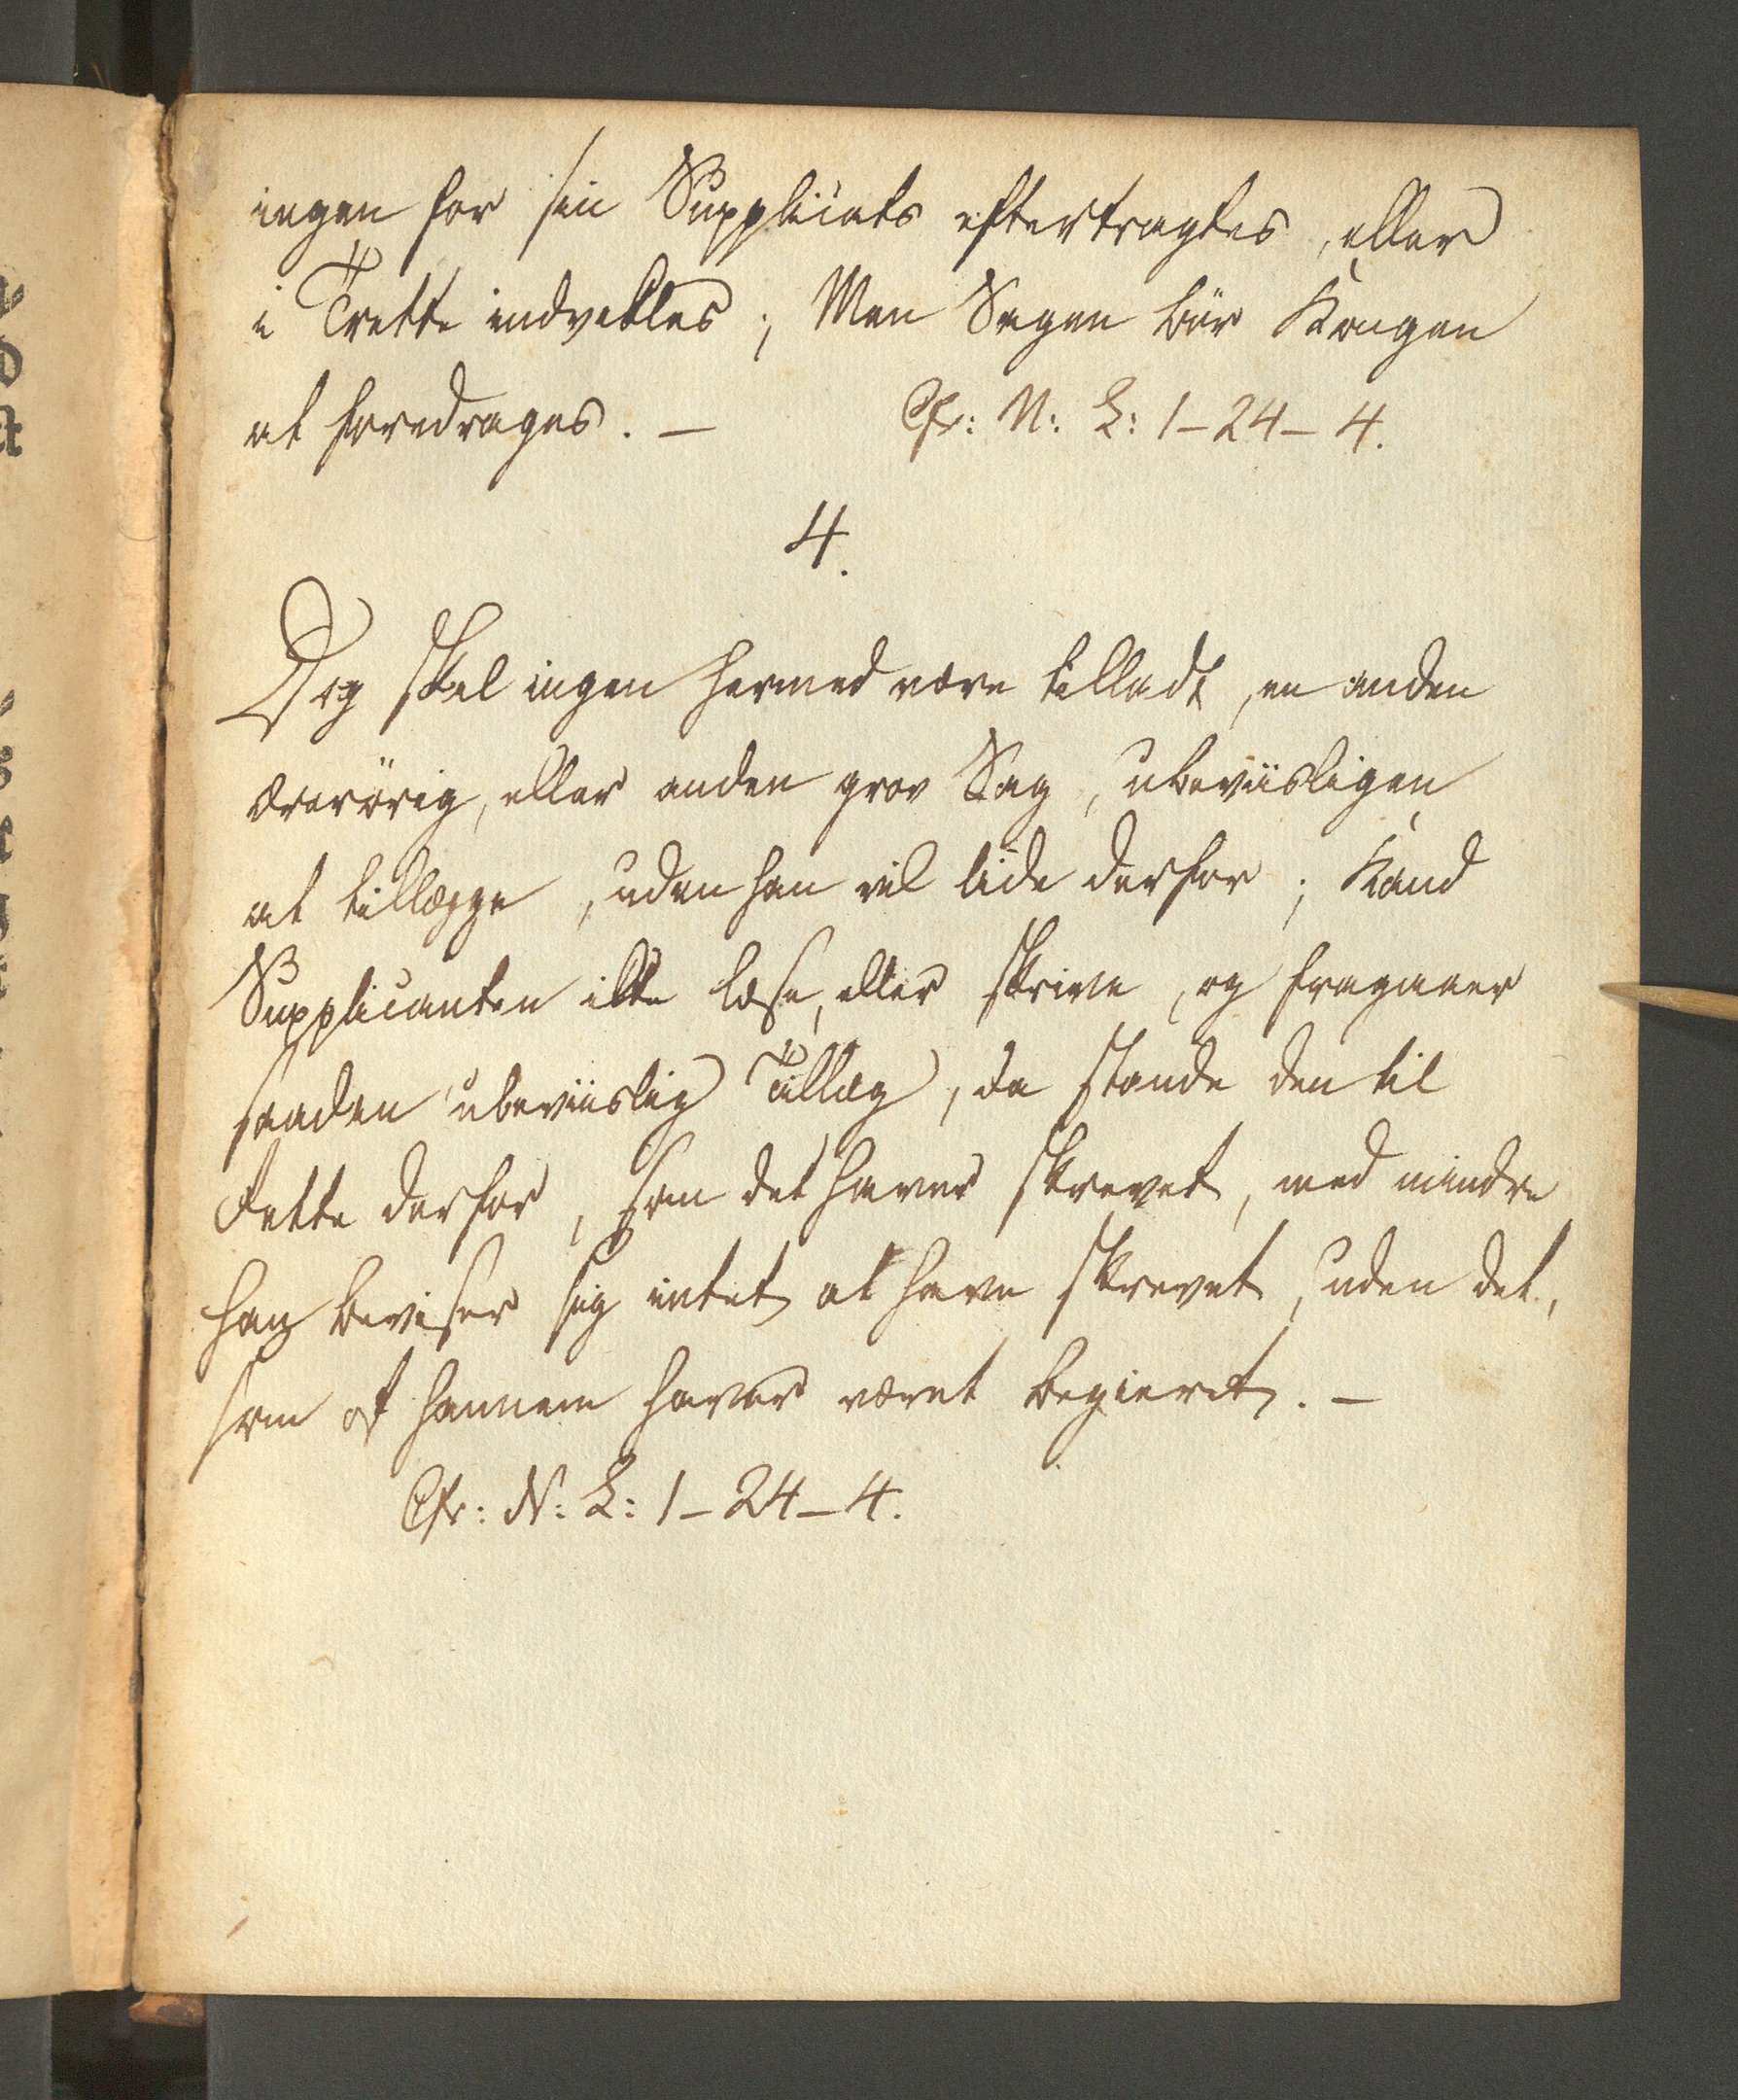 ingen for sin Supplicats eftertragtes, eller
i Trette indvikles; Men Sagen bør Kongen
at foredrages. — Cfr: N: L: 1-24-4.
4.
Dog skal ingen hermed være tilladt, en anden
ærerörig, eller anden grov Sag, ubeviisligen
at tillægge, uden han vil lide derfor; Kand
Supplicanten ikke læse, eller skrive, og fragaaer
saadan ubeviislig Tillæg, da stande den til
Rette derfor, som det haver skrevet, med mindre
han beviser sig intet at have skrevet, uden det,
som af hannem haver været begieret. —
Cfr: N: L: 1-24-4.